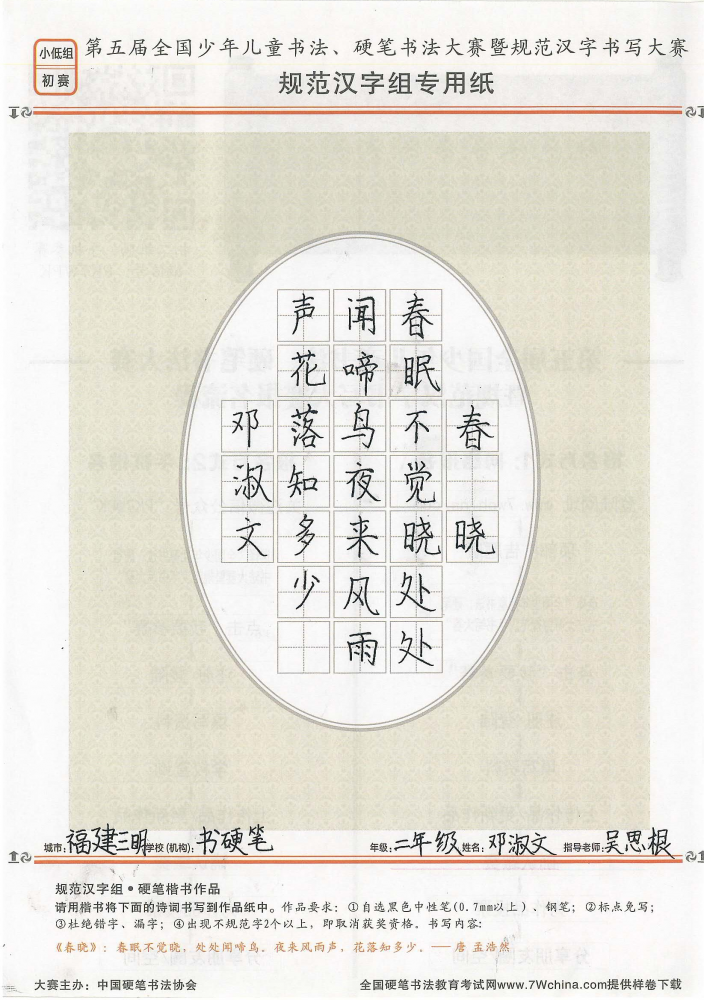 小低组
初赛
第五届全国少年儿童书法、硬笔书法大赛暨规范汉字书写大赛
规范汉字组专用纸
春晓
春眠不觉晓处处
闻啼鸟夜来风雨
声花落知多少
邓淑文
城市:福建三明学校(机构):书硬笔 年级:二年级姓名:邓淑文 指导老师:吴思根
规范汉字组•硬笔楷书作品
请用楷书将下面的诗词书写到作品纸中。作品要求：①自选黑色中性笔(0.7mm以上)、钢笔；②标点免写；
③杜绝错字、漏字；④出现不规范字2个以上，即取消获奖资格。书写内容：
《春晓》：春眠不觉晓，处处闻啼鸟。夜来风雨声，花落知多少。——唐 孟浩然
大赛主办：中国硬笔书法协会 全国硬笔书法教育考试网www.7Wchina.com提供样卷下载